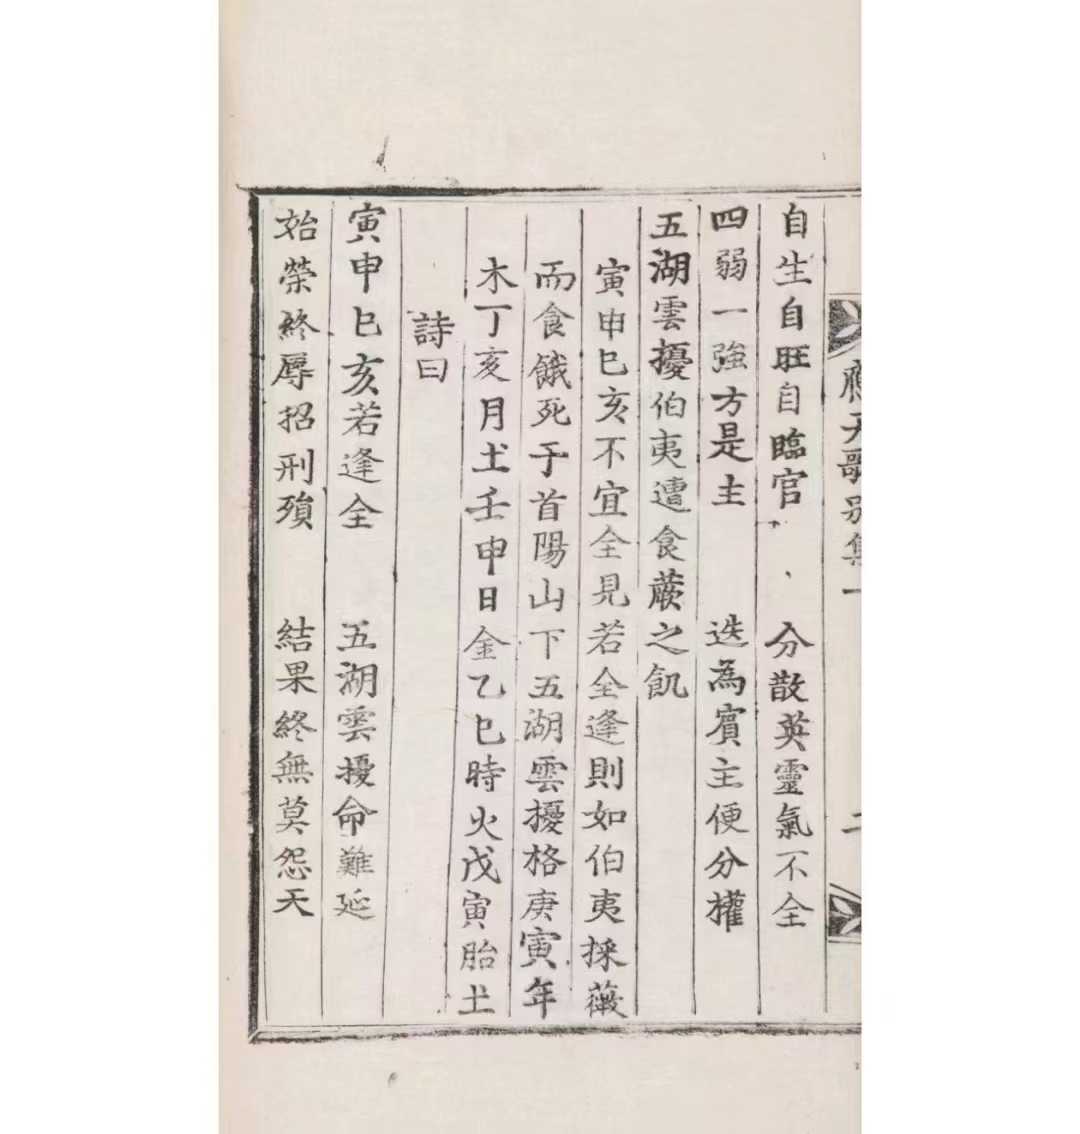 應天歌別集一 二
自生自旺自臨官 分散英靈氣不全
四弱一強方是主 迭為賓主便分權
五湖雲擾伯夷遭食蕨之飢
寅申巳亥不宜全見若全逢則如伯夷採薇
而食餓死于首陽山下五湖雲擾格庚寅年
木丁亥月土壬申日金乙巳時火戊寅胎土
詩曰
寅申巳亥若逢全 五湖雲擾命難延
始榮終辱招刑殞 結果終無莫怨天